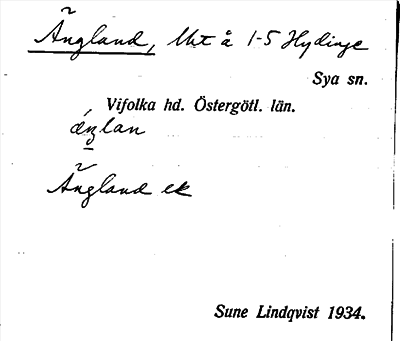 Ängland, Urt å 1-5 Hydinge
Sya sn.
Vifolka hd. Östergötl. län.
ängland ek
Sune Lindqvist 1934.